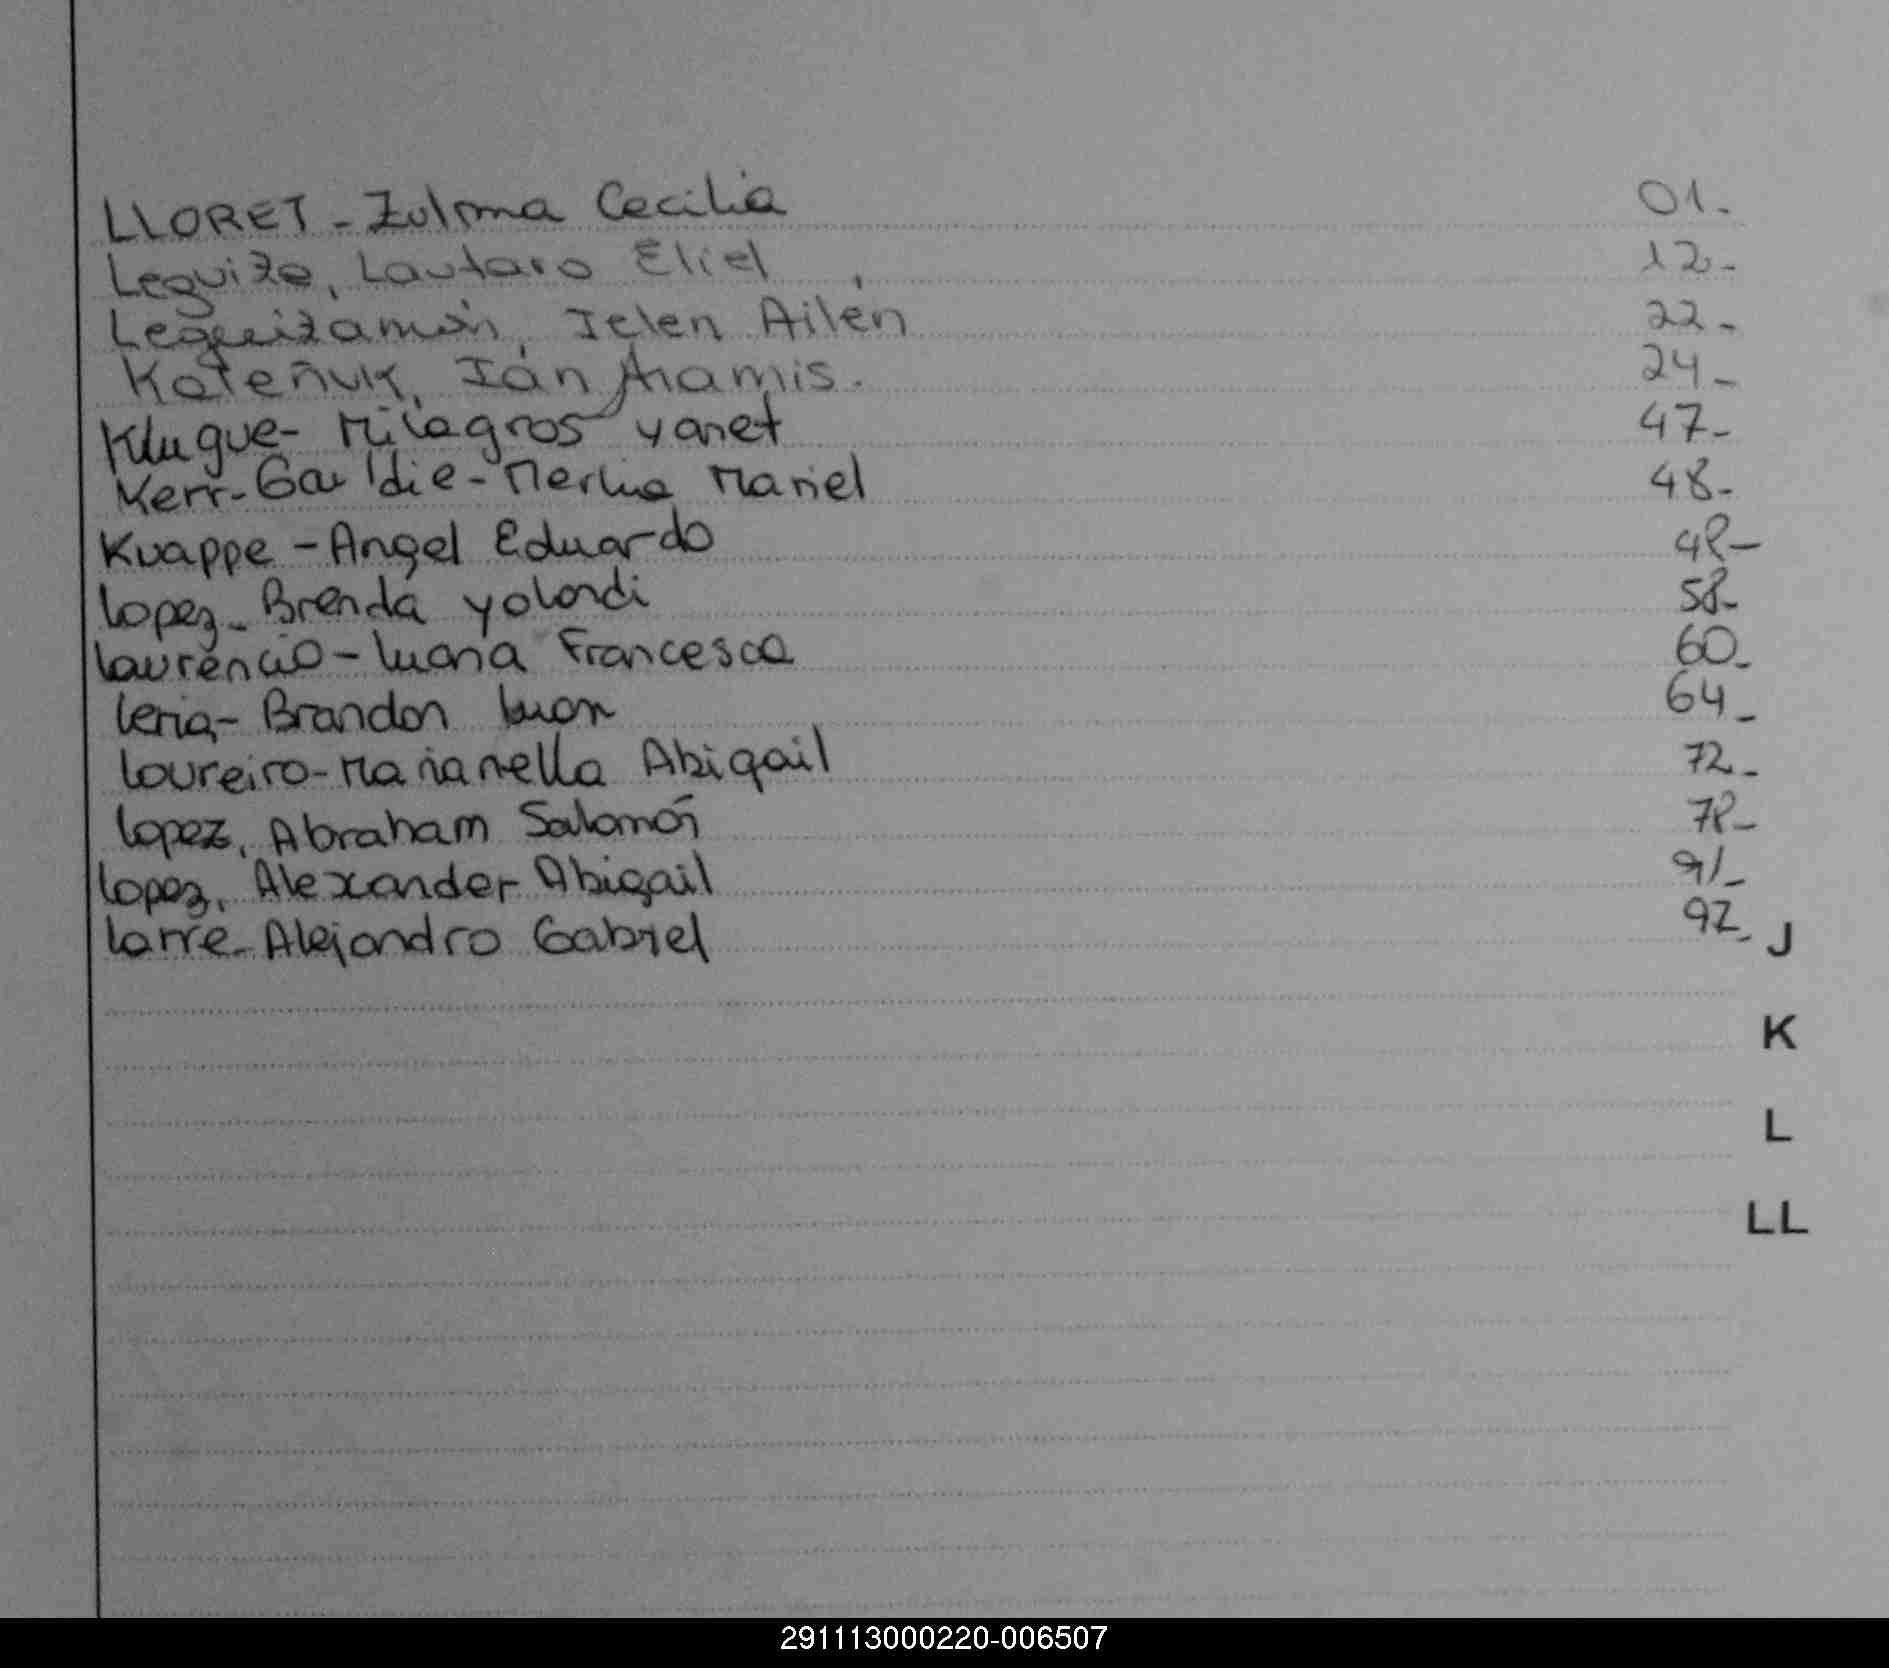 LLORET - Zulma Cecilia 01-
Leguiza, Lautaro Eliel 12-
Leguizamón, Ielen Ailén 22-
Koteñuk, Ián Aramis. 24-
Klugue - Milagros yanet 47-
Kerr - Galdie - Merlia Mariel 48-
Kuappe - Angel Eduardo 48-
Lopez - Brenda yolandi 58-
Laurencio - Luana Francesca 60-
Leria - Brandon Luan 64-
Loureiro - Marianella Abigail 72-
Lopez, Abraham Salomón 78-
Lopez, Alexander Abigail 91-
Larre - Alejandro Gabriel 92-
J
K
L
LL
291113000220-006507